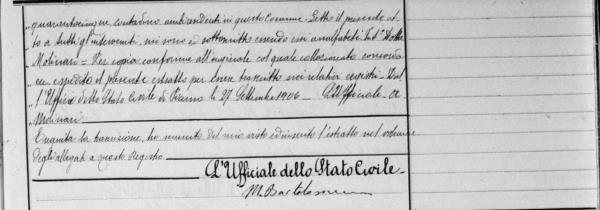 quarantacinque, contadino ambi residenti in questo Comune. Letto il presente at-
to a tutti gl'intervenuti, mi sono io sottoscritto essendo essi analfabeti.
Molinari = Per copia conforme all'originale col quale collazionato concorda
ed è spedito il presente estratto per essere trascritto nei relativi registri. Dal
l'Ufficio dello Stato Civile di li 27 Settembre 1906. L'Ufficiale. A
Molinari
Eseguita la trascrizione, ho munito del mio visto ed inserito l'estratto nel volume
degli allegati a questo Registro.
L'Ufficiale dello Stato Civile.
M. Bartolomeu